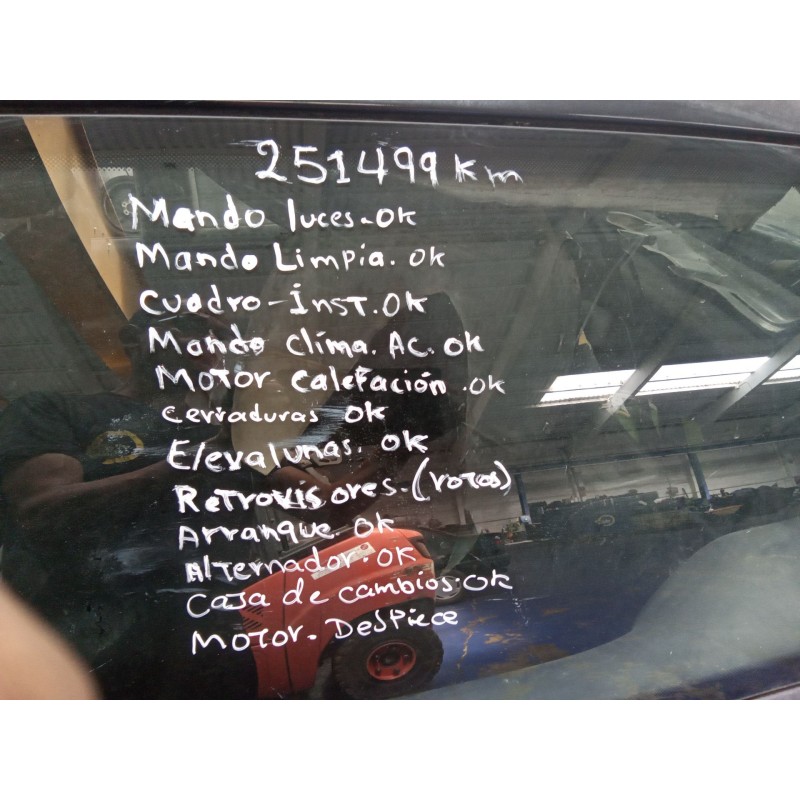 251499 Km
Mando luces-OK
Mando Limpia. OK
Cuadro-Inst. OK
Mando Clima. AC. OK
Motor Calefación. OK
Cerraduras OK
Elevalunas. OK
Retrovisores. (rotos)
Arranque. OK
Alternador. OK
Caja de cambios. OK
Motor. Despiece